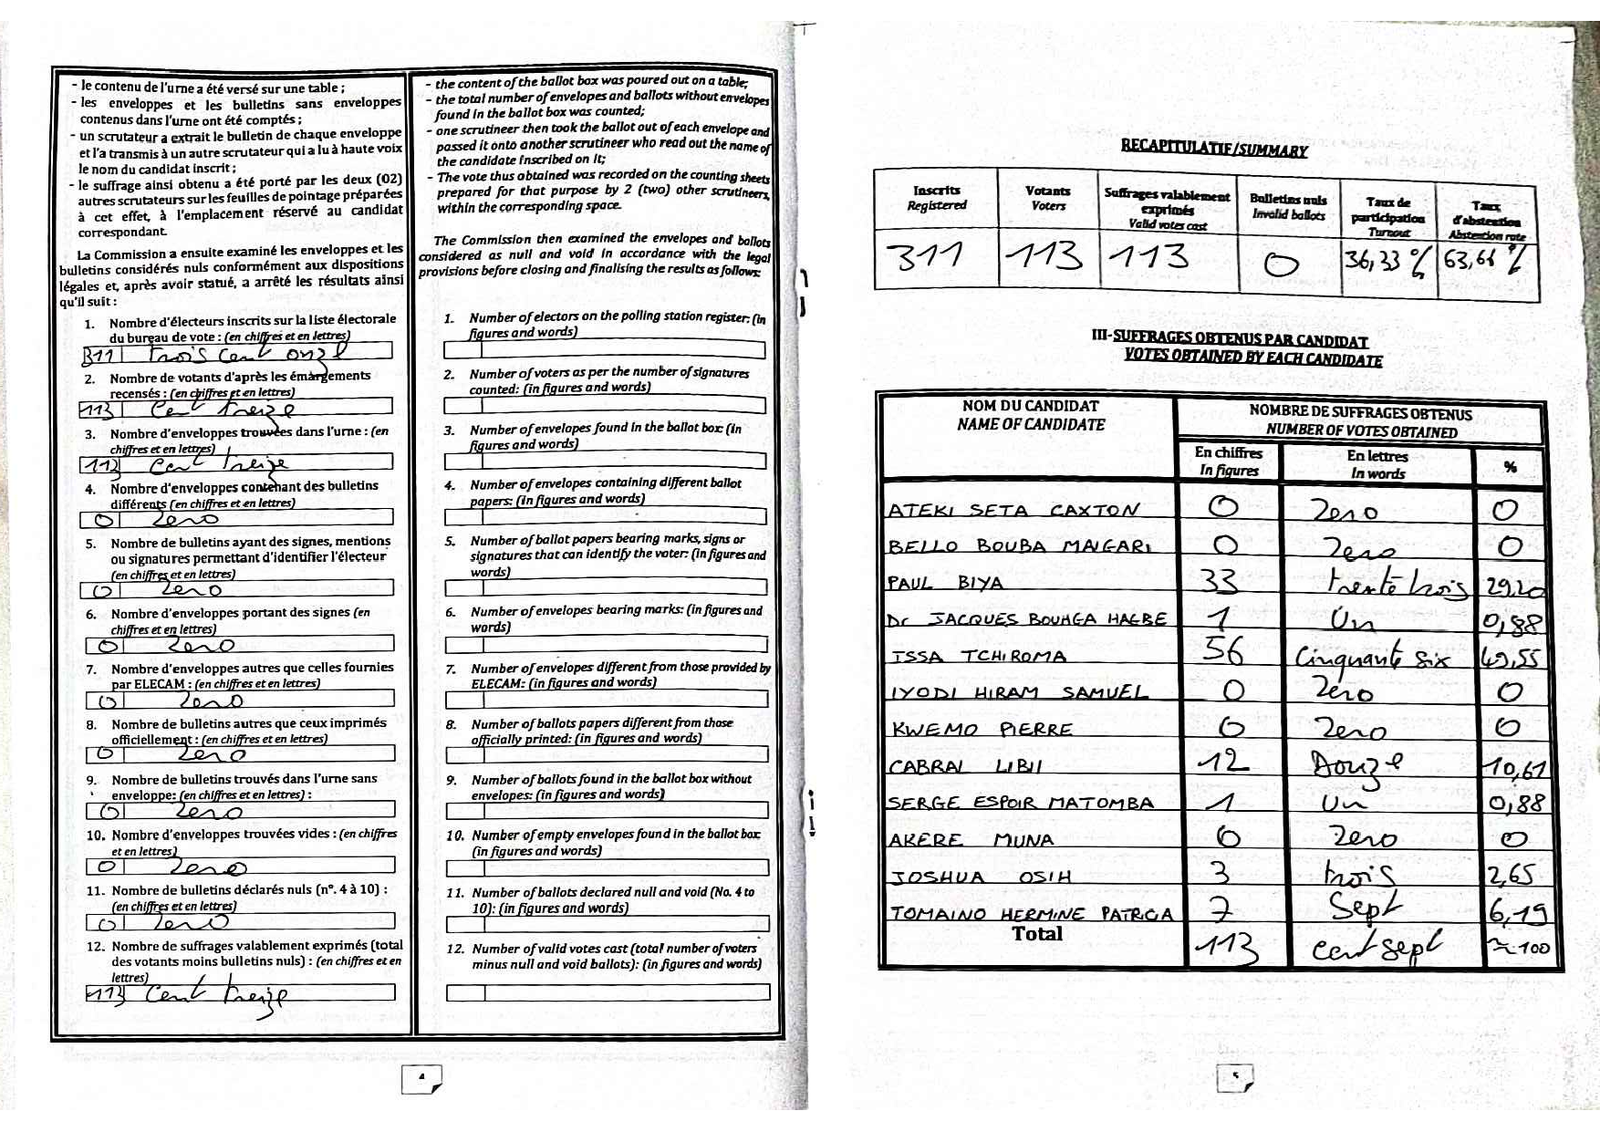 - le contenu de l'urne a été versé sur une table ;
- les enveloppes et les bulletins sans enveloppes
contenus dans l'urne ont été comptés ;
- un scrutateur a extrait le bulletin de chaque enveloppe
et l'a transmis à un autre scrutateur qui a lu à haute voix
le nom du candidat inscrit ;
- le suffrage ainsi obtenu a été porté par les deux (02)
autres scrutateurs sur les feuilles de pointage préparées
à cet effet, à l'emplacement réservé au candidat
correspondant.
La Commission a ensuite examiné les enveloppes et les
bulletins considérés nuls conformément aux dispositions
légales et, après avoir statué, a arrêté les résultats ainsi
qu'il suit :
1. Nombre d'électeurs inscrits sur la liste électorale
du bureau de vote : (en chiffres et en lettres)
311 trois cent onze
2. Nombre de votants d'après les émargements
recensés : (en chiffres et en lettres)
113 Cent treize
3. Nombre d'enveloppes trouvées dans l'urne : (en
chiffres et en lettres)
113 Cent treize
4. Nombre d'enveloppes contenant des bulletins
différents (en chiffres et en lettres)
0 Zero
5. Nombre de bulletins ayant des signes, mentions
ou signatures permettant d'identifier l'électeur
(en chiffres et en lettres)
0 Zero
6. Nombre d'enveloppes portant des signes (en
chiffres et en lettres)
0 Zero
7. Nombre d'enveloppes autres que celles fournies
par ELECAM : (en chiffres et en lettres)
0 Zero
8. Nombre de bulletins autres que ceux imprimés
officiellement : (en chiffres et en lettres)
0 Zero
9. Nombre de bulletins trouvés dans l'urne sans
enveloppe: (en chiffres et en lettres) :
0 Zero
10. Nombre d'enveloppes trouvées vides : (en chiffres
et en lettres)
0 Zero
11. Nombre de bulletins déclarés nuls (n°. 4 à 10) :
(en chiffres et en lettres)
0 Zero
12. Nombre de suffrages valablement exprimés (total
des votants moins bulletins nuls) : (en chiffres et en
lettres)
113 Cent treize
- the content of the ballot box was poured out on a table;
- the total number of envelopes and ballots without envelopes
found in the ballot box was counted;
- one scrutineer then took the ballot out of each envelope and
passed it onto another scrutineer who read out the name of
the candidate inscribed on it;
- The vote thus obtained was recorded on the counting sheets
prepared for that purpose by 2 (two) other scrutineers,
within the corresponding space.
The Commission then examined the envelopes and ballots
considered as null and void in accordance with the legal
provisions before closing and finalising the results as follows:
1. Number of electors on the polling station register: (in
figures and words)
2. Number of voters as per the number of signatures
counted: (in figures and words)
3. Number of envelopes found in the ballot box: (in
figures and words)
4. Number of envelopes containing different ballot
papers: (in figures and words)
5. Number of ballot papers bearing marks, signs or
signatures that can identify the voter: (in figures and
words)
6. Number of envelopes bearing marks: (in figures and
words)
7. Number of envelopes different from those provided by
ELECAM: (in figures and words)
8. Number of ballots papers different from those
officially printed: (in figures and words)
9. Number of ballots found in the ballot box without
envelopes: (in figures and words)
10. Number of empty envelopes found in the ballot box:
(in figures and words)
11. Number of ballots declared null and void (No. 4 to
10): (in figures and words)
12. Number of valid votes cast (total number of voters
minus null and void ballots): (in figures and words)
4
RECAPITULATIF/SUMMARY
Inscrits Registered
Votants Voters
Suffrages valablement exprimés Valid votes cast
Bulletins nuls Invalid ballots
Taux de participation Turnout
Taux d'abstention Abstention rate
311 113 113 0 36,33 % 63,66 %
III-SUFFRAGES OBTENUS PAR CANDIDAT
VOTES OBTAINED BY EACH CANDIDATE
NOM DU CANDIDAT NOMBRE DE SUFFRAGES OBTENUS
NAME OF CANDIDATE NUMBER OF VOTES OBTAINED
En chiffres En lettres %
In figures In words
ATEKI SETA CAXTON 0 Zero 0
BELLO BOUBA MAIGARI 0 Zero 0
PAUL BIYA 33 trente trois 29,20
Dr JACQUES BOUHGA HAGBE 1 Un 0,88
ISSA TCHIROMA 56 Cinquante six 49,55
IYODI HIRAM SAMUEL 0 Zero 0
KWEMO PIERRE 0 Zero 0
CABRAL LIBII 12 Douze 10,61
SERGE ESPOIR MATOMBA 1 Un 0,88
AKERE MUNA 0 Zero 0
JOSHUA OSIH 3 trois 2,65
TOMAINO HERMINE PATRICIA 7 Sept 6,19
Total 113 Cent sept ≈100
5